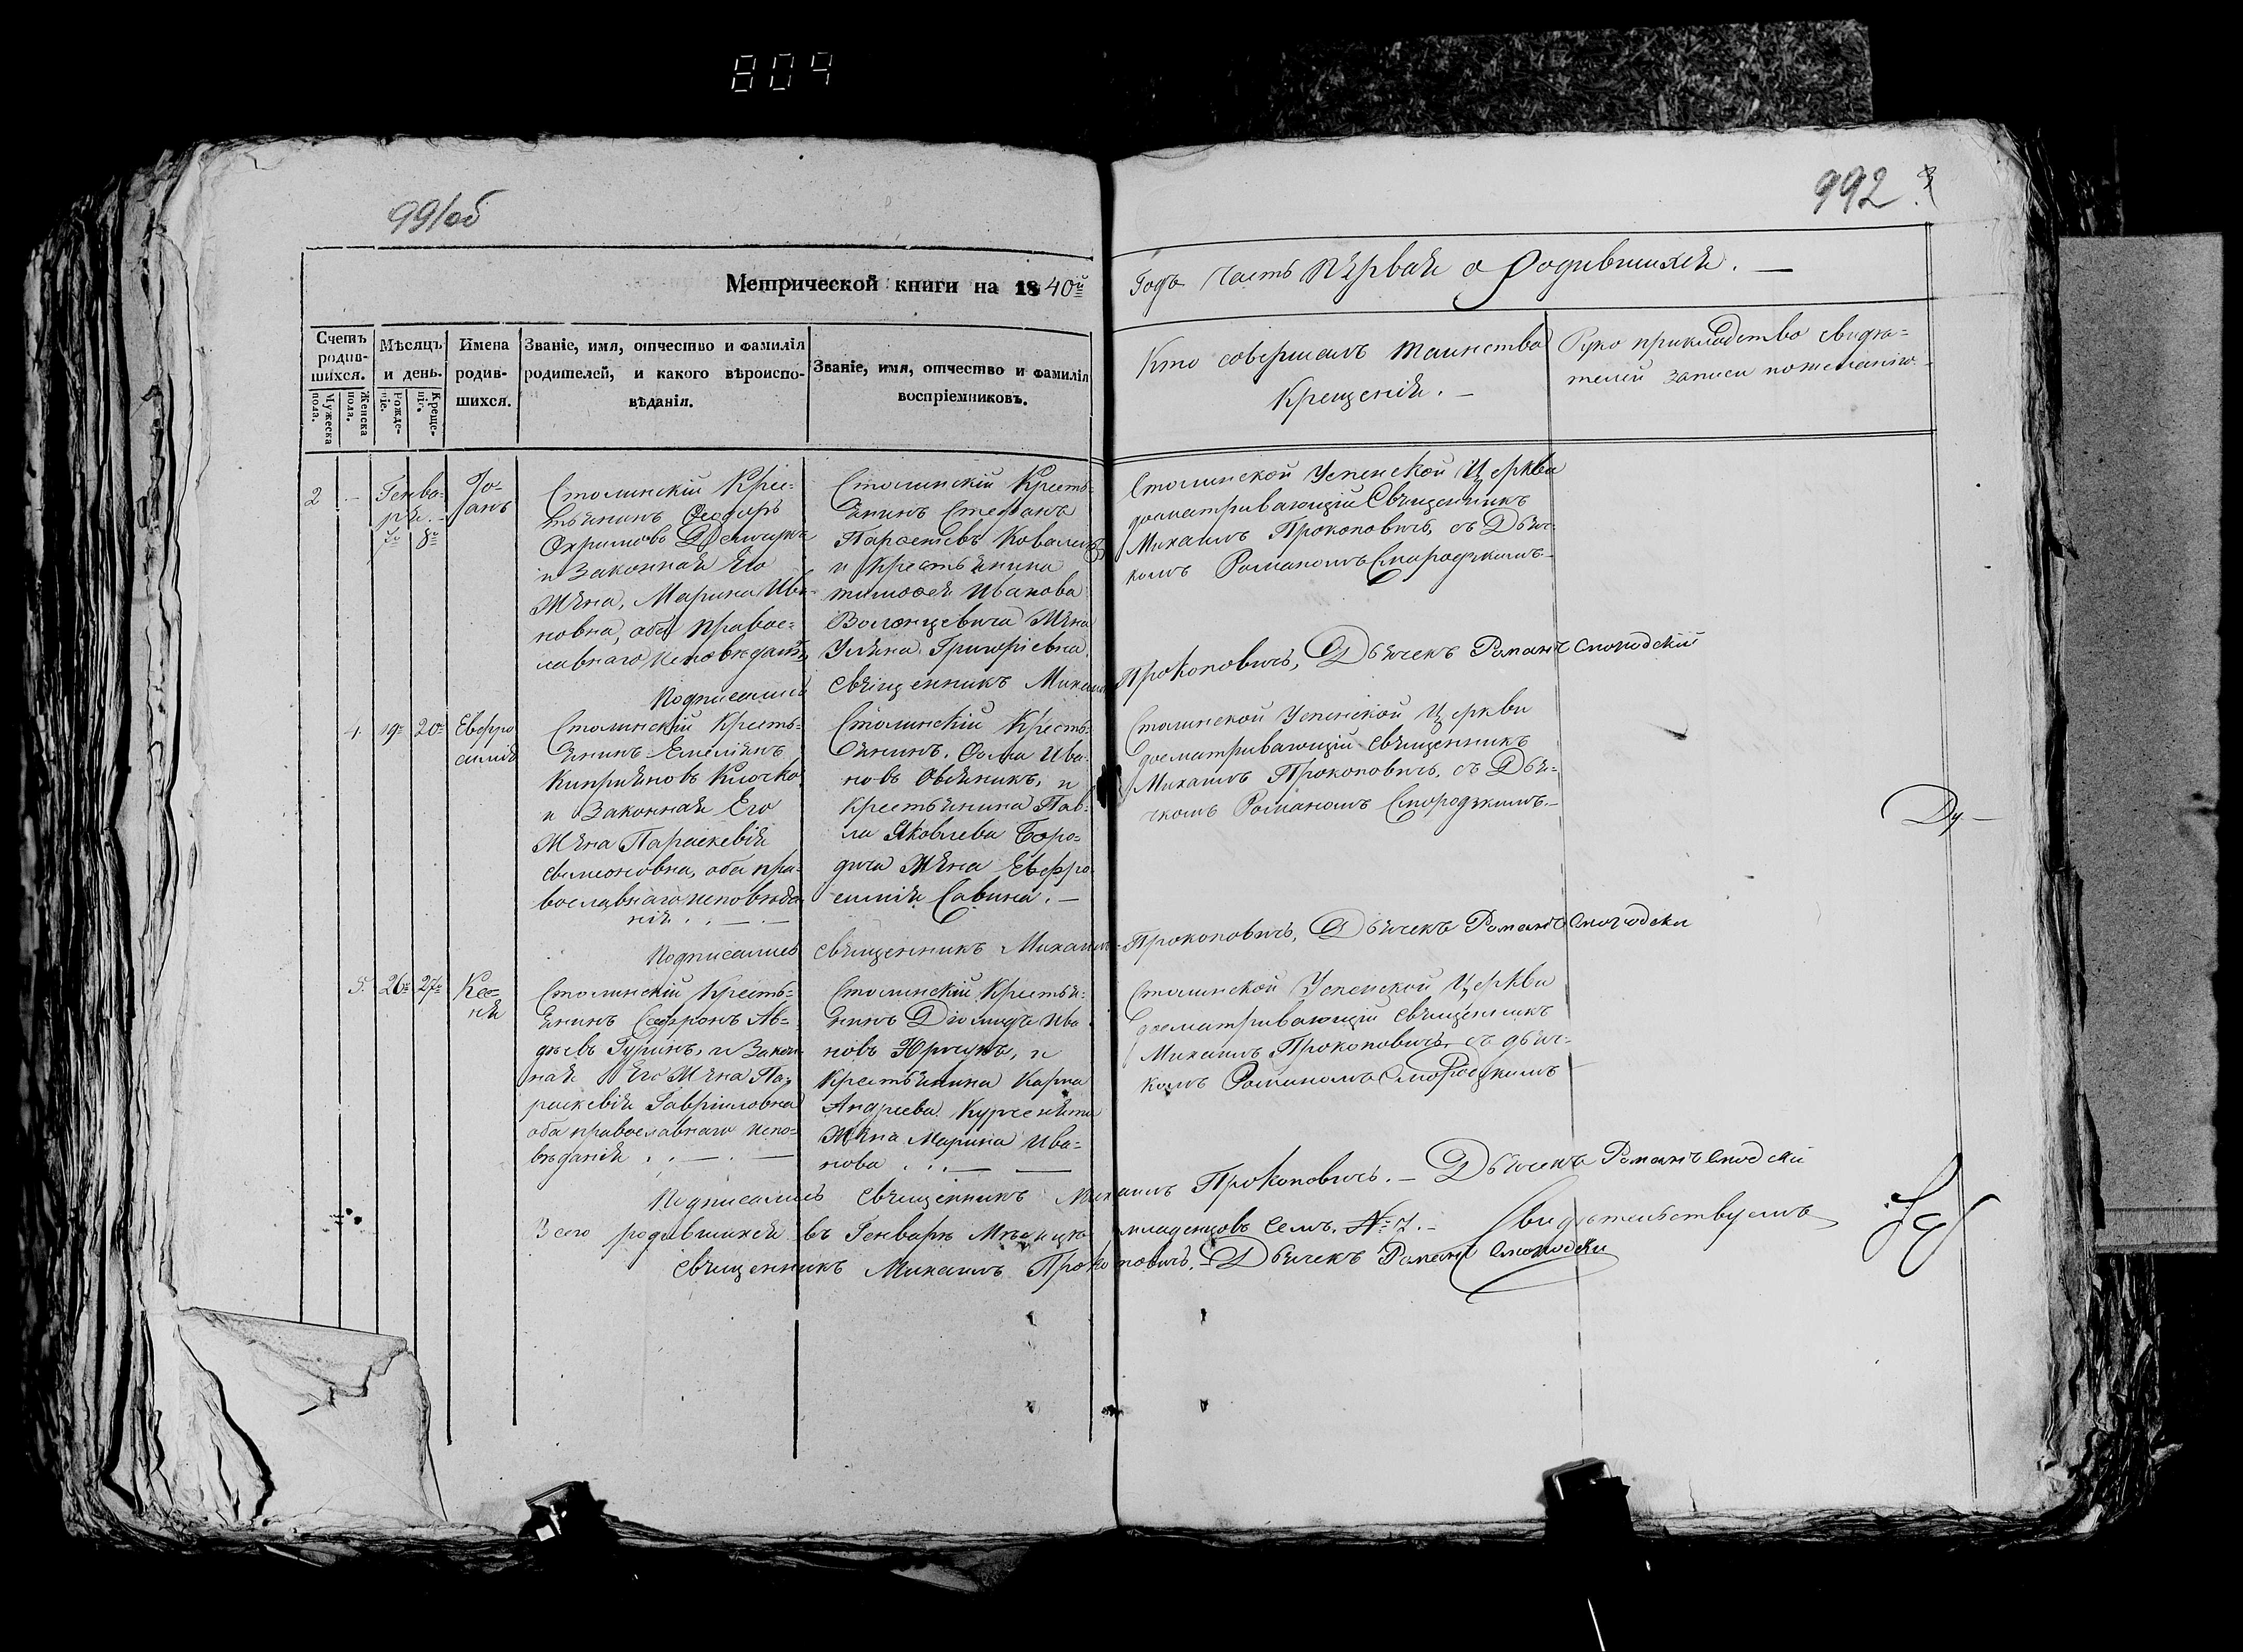 809
991об
992
Метрической книги на 1840й
Годъ Часть Первая о Родившихся. —
Счетъ родив-
шихся.
Мужеска пола.
Женска пола.
Мѣсяцъ
и день.
Рожде-
ніе.
Креще-
ніе.
Имена
родив-
шихся.
Званіе, имя, отчество и фамилія
родителей, и какого вѣроиспо-
вѣданія.
Званіе, имя, отчество и фамилія
воспріемниковъ.
Кто совершалъ таинство
Крещенія. —
Руко прикладство свидѣ=
телей записи по желанію.
2 — Генва-
ря. —
7го 8го
Іо-
анъ
Столинскій Крес-
тьянинъ Феодоръ
Охримовъ
и Законная Его
Жена, Марина Ива-
новна, оба правос=
лавнаго исповѣданія
Столинскій Кресть-
янинъ Стефанъ
и Крестьянина
тимофея Иванова
Жена
Уляна Григоріевна.
Столинской Успенской Церкви
досматривающій Священникъ
Михаилъ Прокоповичъ, съ Дьяч-
комъ Романомъ Смородскимъ —
Подписались Священникъ Михаилъ Прокоповичъ, Дьячекъ Романъ
4. 19го 20го
Евфро
синия
Столинскій Кресть-
янинъ Емеліянъ
Кипріяновъ Клочко
и Законная Его
Жена Параскевія
Симеоновна, оба пра-
вославнаго исповѣда
нія. . — . —
Столинскій Кресть-
янинъ, Фома Ива-
новъ Овсяникъ, и
крестьянина Пав-
ла Яковлева Боро-
дича Жена Евфро
синия Савина. —
Столинской Успенской Церкви
досматривающій Священникъ
Михаилъ Прокоповичъ, съ Дья-
чкомъ Романомъ Смородскимъ. —
Подписались Священникъ Михаилъ Прокоповичъ, Дьячекъ Романъ
5. 26го 27го
Ксе-
ня
Столинскій Кресть=
янинъ Софронъ Ав-
дѣевъ Гуринъ, и Закон
ная Его Жена Па-
раскевія Гавріиловна
оба православнаго испо=
вѣданія . . — . —
Столинскій Крестья-
нинъ Діомидъ Ива
новъ Юрчукъ, и
Крестьянина Карпа
Андреева
Жена Марина Ива=
нова . . . — —
Столинской Успенской Церкви
досматривающій священникъ
Михаилъ Прокоповичъ, съ дьяч-
комъ Романомъ Смородскимъ
Подписались Священникъ Михаилъ Прокоповичъ. — Дьячекъ Романъ
Всего родившихся въ Генварѣ Мѣсяцѣ младенцовъ семь. № 7. — Свидѣтельствуемъ
Священникъ Михаилъ Прокоповичъ. — Дьячекъ Романъ